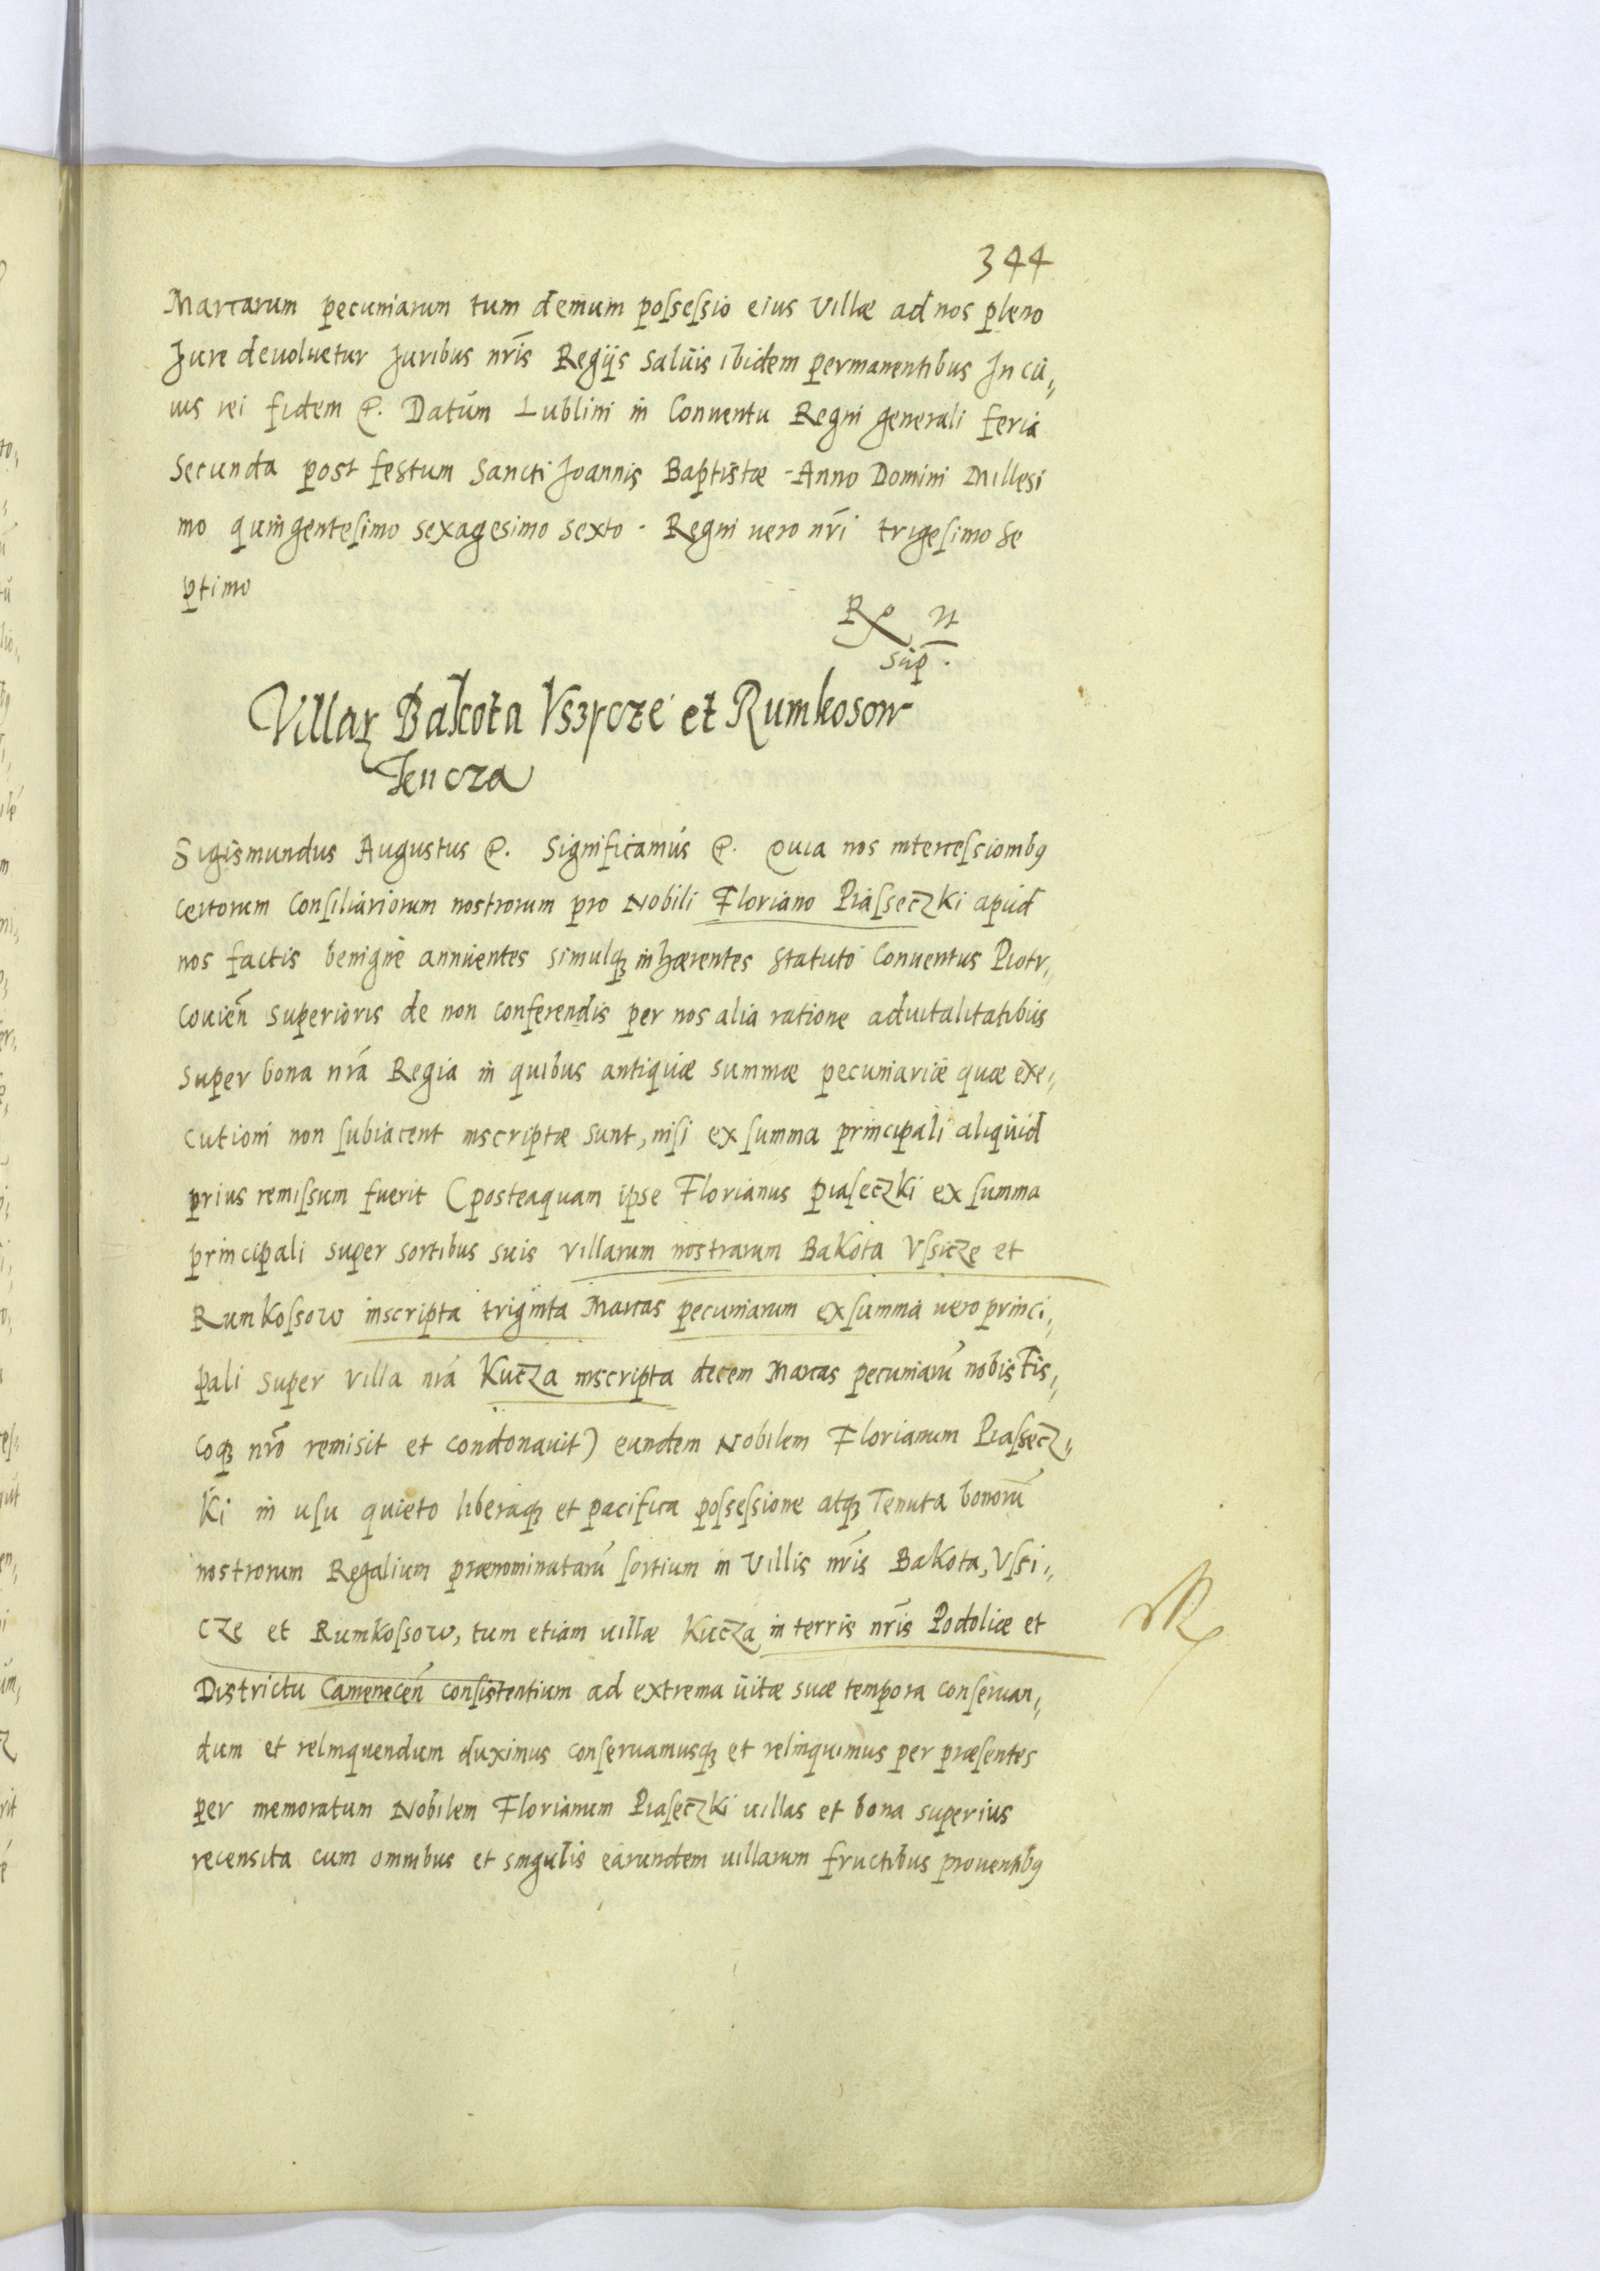 344
Marcarum pecuniarum tum demum possessio eius Villæ ad nos pleno
Jure deuoluetur Juribus nr̃is Regijs saluis ibidem permanentibus In cu„
ius rei fidem &. Datum Lublini in Conuentu Regni generali feria
Secunda post festum Sancti Joannis Baptistæ Anno Domini Millesi
mo quingentesimo sexagesimo sexto. Regni uero nr̃i trigesimo se
ptimo
sup̃.
Villaꝝ Bakota Vszycze et Rumkosow
Sigismundus Augustus &. Significamus &. Quia nos intercessionibꝯ
certorum Consiliariorum nostrorum pro Nobili Floriano Piasseczki apud
nos factis benigne annuentes simulqꝫ inhærentes Statuto Conuentus Piotr„
couieñ superioris de non conferendis per nos alia ratione aduitalitatibus
super bona nr̃a Regia in quibus antiquæ summæ pecuniariæ quæ exe„
cutioni non subiacent inscriptæ sunt, nisi ex summa principali aliquid
prius remissum fuerit (posteaquam ipse Florianus piaseczki ex summa
principali super sortibus suis villarum nostrarum Bakota Vssicze et
Rumkossow inscripta triginta Marcas pecuniarum ex summa uero princi„
pali super villa nr̃a Kucza inscripta decem Marcas pecuniarũ nobis Fis„
coqꝫ nr̃o remisit et condonauit) eundem Nobilem Florianum Piassecz„
Ki in usu quieto liberaqꝫ et pacifica possessione atqꝫ Tenuta bonorũ
nostrorum Regalium prænominatarũ sortium in Villis nr̃is Bakota, Vssi„
cze et Rumkossow, tum etiam uillæ Kucza in terris nr̃is Podoliæ et
Districtu Cameneceñ consistentium ad extrema uitæ suæ tempora conseruan„
dum et relinquendum duximus conseruamusqꝫ et relinquimus per præsentes
per memoratum Nobilem Florianum Piaseczki uillas et bona superius
recensita cum omnibus et singulis earundem uillarum fructibus prouentibꝯ